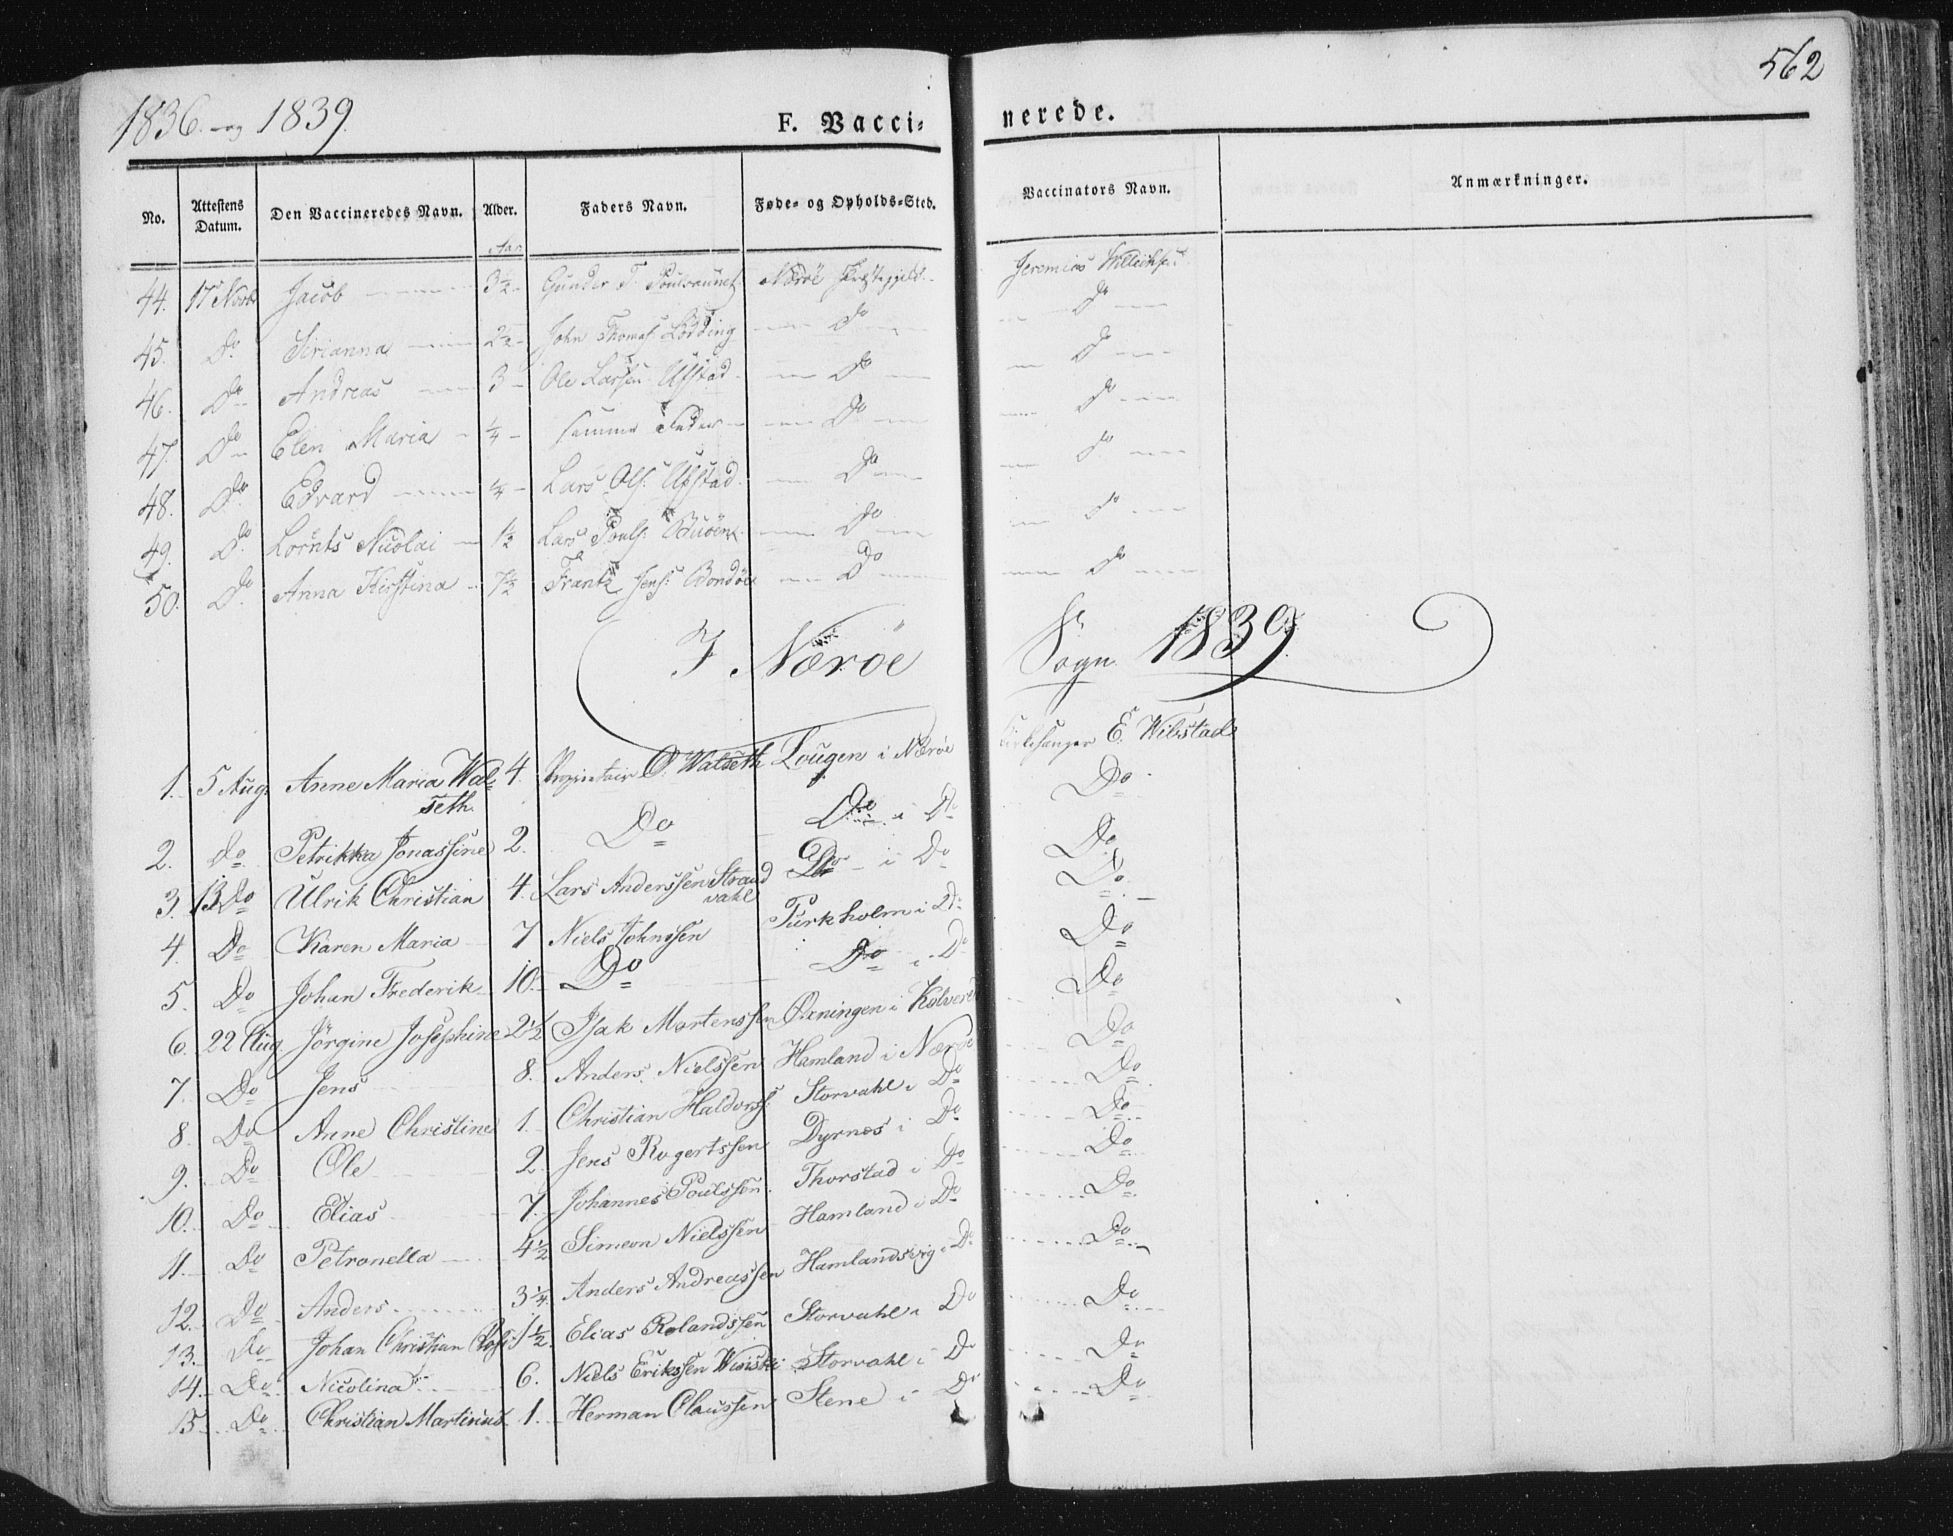 562
1836 og 1839.
F. Vacci- nerede.
No. | Attestens Datum. | Den Vaccineredes Navn. | Alder. | Faders Navn. | Føde- og Opholds-Sted. | Vaccinators Navn. | Anmærkninger.
Aar
44. 17 Novbr Jacob 3½ Gunder T. Poulsaunet Nærøe Præstegjeld Jeremias
45. Do Sirianna 2½ John Thomas. Lødding Do Do
46. Do Andreas 3 Ole Larsen Ufstad Do Do
47. Do Elen Maria ¼ samme Fader Do Do
48. Do Edvard ¼ Lars Ols. Ufstad Do Do
49. Do Lornts Nicolai ½ Lars Pouls. Do Do
50. Do Anna Kirstina 7½ Frantz Jens. Bondøe Do Do
I Nærøe Sogn 1839
1. 5 Aug. Anne Maria Wal- 4. Proprietair O. Walseth Lougen i Nærøe Kirkesanger E. Wibstad
seth. Do
2. do Petrikka Jonassine 2. Do Do i Do Do
3. 13 Do Ulrik Christian 4. Lars Anderssen Strand Do i Do Do
vahl
4. Do Karen Maria 7 Niels Johnssen Purkholm i Do Do
5. Do Johan Frederik 10. Do Do i Do Do
6. 22 Aug. Jørgine Josephine 2½ Isak Mortenssen Øxningen i Kolvered Do
7. Do Jens 8. Anders Nielssen Hamland i Nærøe Do
8. Do Anne Christine 1. Christian Haldorss. Storvahl i Do Do
9. Do Ole 2. Jens Rogertssen Dyrnes i Do Do
10. Do Elias 7. Johannes Poulssøn Thorstad i Do Do
11. Do Petronella 4½ Simeon Nielssen Hamland i Do Do
12. Do Anders 3¼. Anders Andreassen Hamlandsvig i Do Do
13. Do Johan Christian 1½. Elias Rolandssen Storvahl i Do Do
14. Do Nicolina 6. Niels Erikssen Storvahl i Do Do
15 Do Christian Martinus 1. Herman Claussen Stene i Do Do